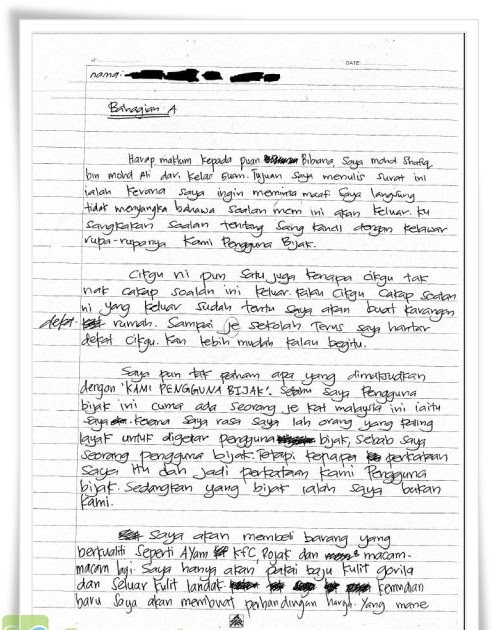 DATE:
nama:
Bahagian A
Harap maklum kepada puan Bibiana, Saya mohd Shafiq
bin mohd Ali dari kelas 5 uam. Tujuan saya menulis surat ini
ialah kerana saya ingin meminta maaf. Saya langsung
tidak menyangka bahawa soalan mcm ini akan keluar. ku
sangkakan soalan tentang Sang kancil dengan kelawar
rupa-rupanya Kami Pengguna Bijak.
Cikgu ni pun satu juga kenapa cikgu tak
nak cakap soalan ini keluar. kalau cikgu cakap soalan
ni yang keluar sudah tentu saya akan buat karangan
dekat rumah. Sampai je sekolah terus saya hantar
dekat cikgu. kan lebih mudah kalau begitu.
Saya pun tak paham apa yang dimaksudkan
dengan 'KAMI PENGGUNA BIJAK'. Pengguna
bijak ini cuma ada seorang je kat malaysia ini iaitu
saya. kerana saya rasa saya lah orang yang paling
layak untuk digelar pengguna bijak, sebab saya
seorang pengguna bijak. Tetapi kenapa perkataan
Saya itu dah jadi perkataan Kami Pengguna
bijak. Sedangkan yang bijak ialah saya bukan
kami.
Saya akan membeli barang yang
berkualiti seperti Ayam KFC, Rojak dan macam-
macam lagi. Saya hanya akan pakai baju kulit gorila
dan seluar kulit landak kemudian
baru saya akan membuat perbandingan harga. Yang mane